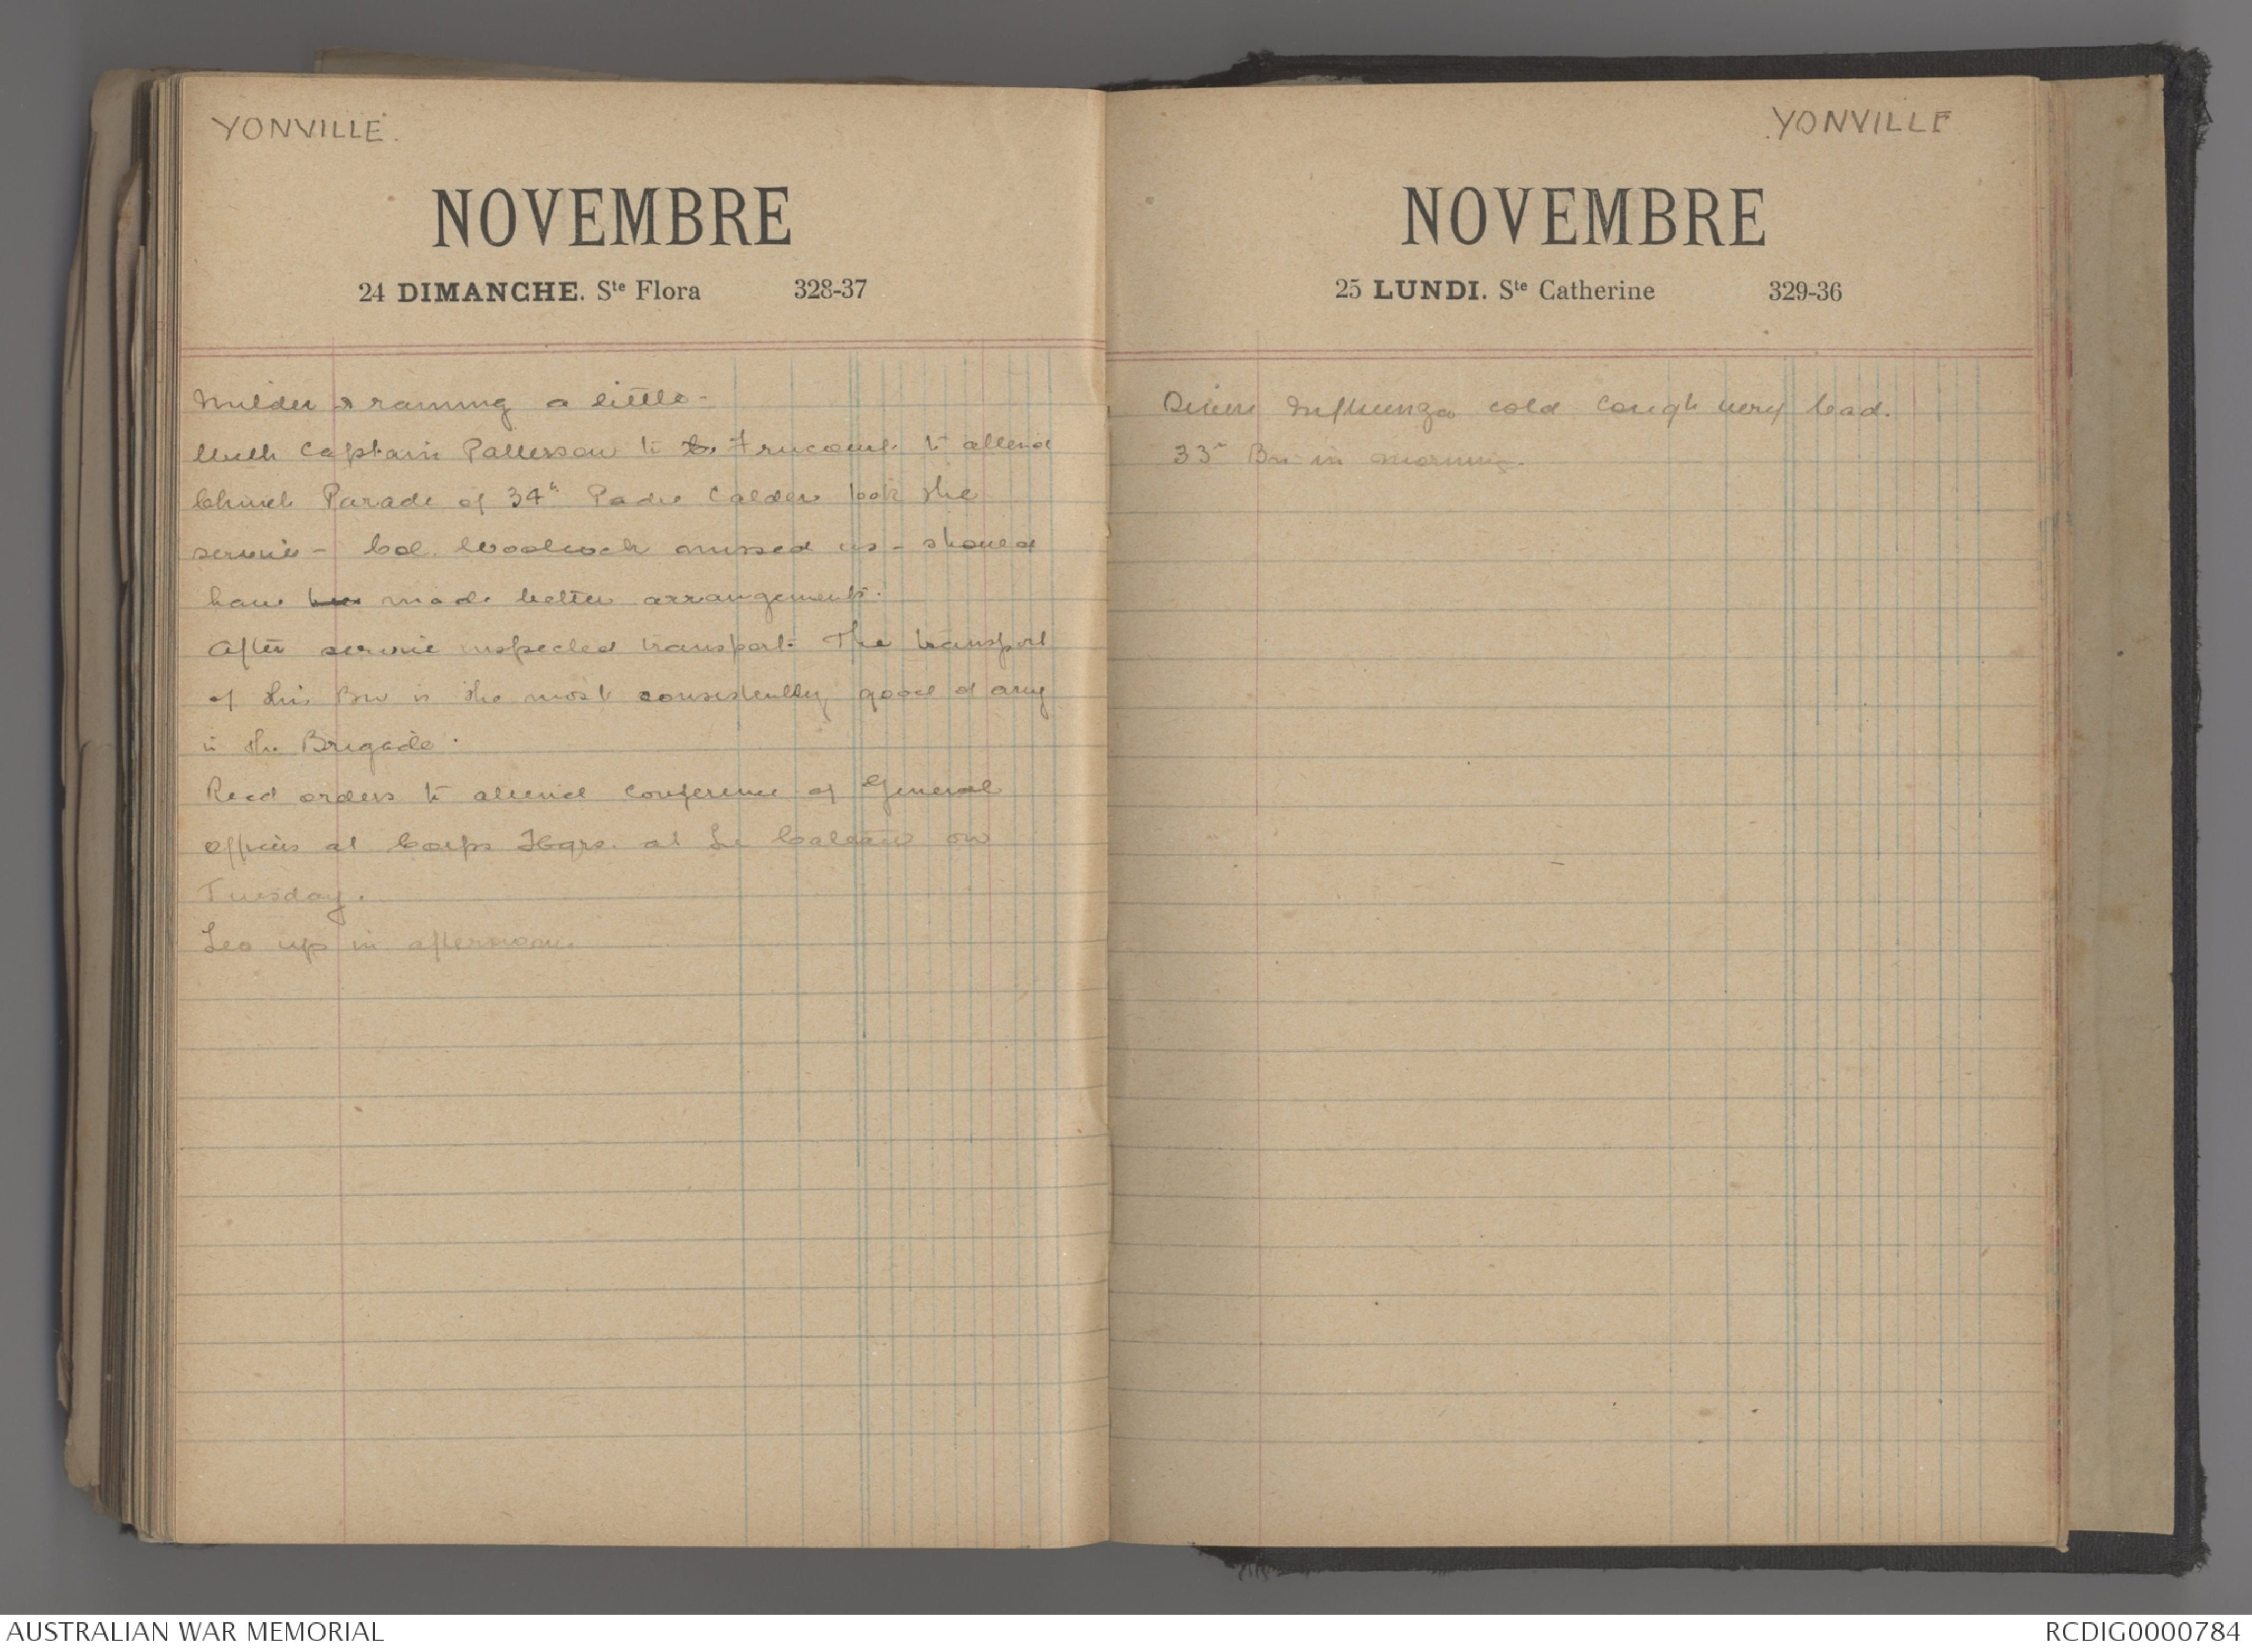 YONVILLE.
NOVEMBRE
24 DIMANCHE. Ste Flora 328-37
Milder & raining a little -
With Captain Patterson to to Frucourt to attend
Church Parade of 34th Padre Calder took the
service - Col. Woolcock missed us - should
have made better arrangements.
After service inspected transport. The transport
of this Bn is the most consistently good of any
in the Brigade.
Recd orders to attend conference of General
Officers at Corps Hqrs. at Le Cateau on
Tuesday.
Leo up in afternoon.
YONVILLE
NOVEMBRE
25 LUNDI. Ste Catherine 329-36
Influenza cold cough very bad.
33rd Bn in morning.
AUSTRALIAN WAR MEMORIAL
RCDIG0000784